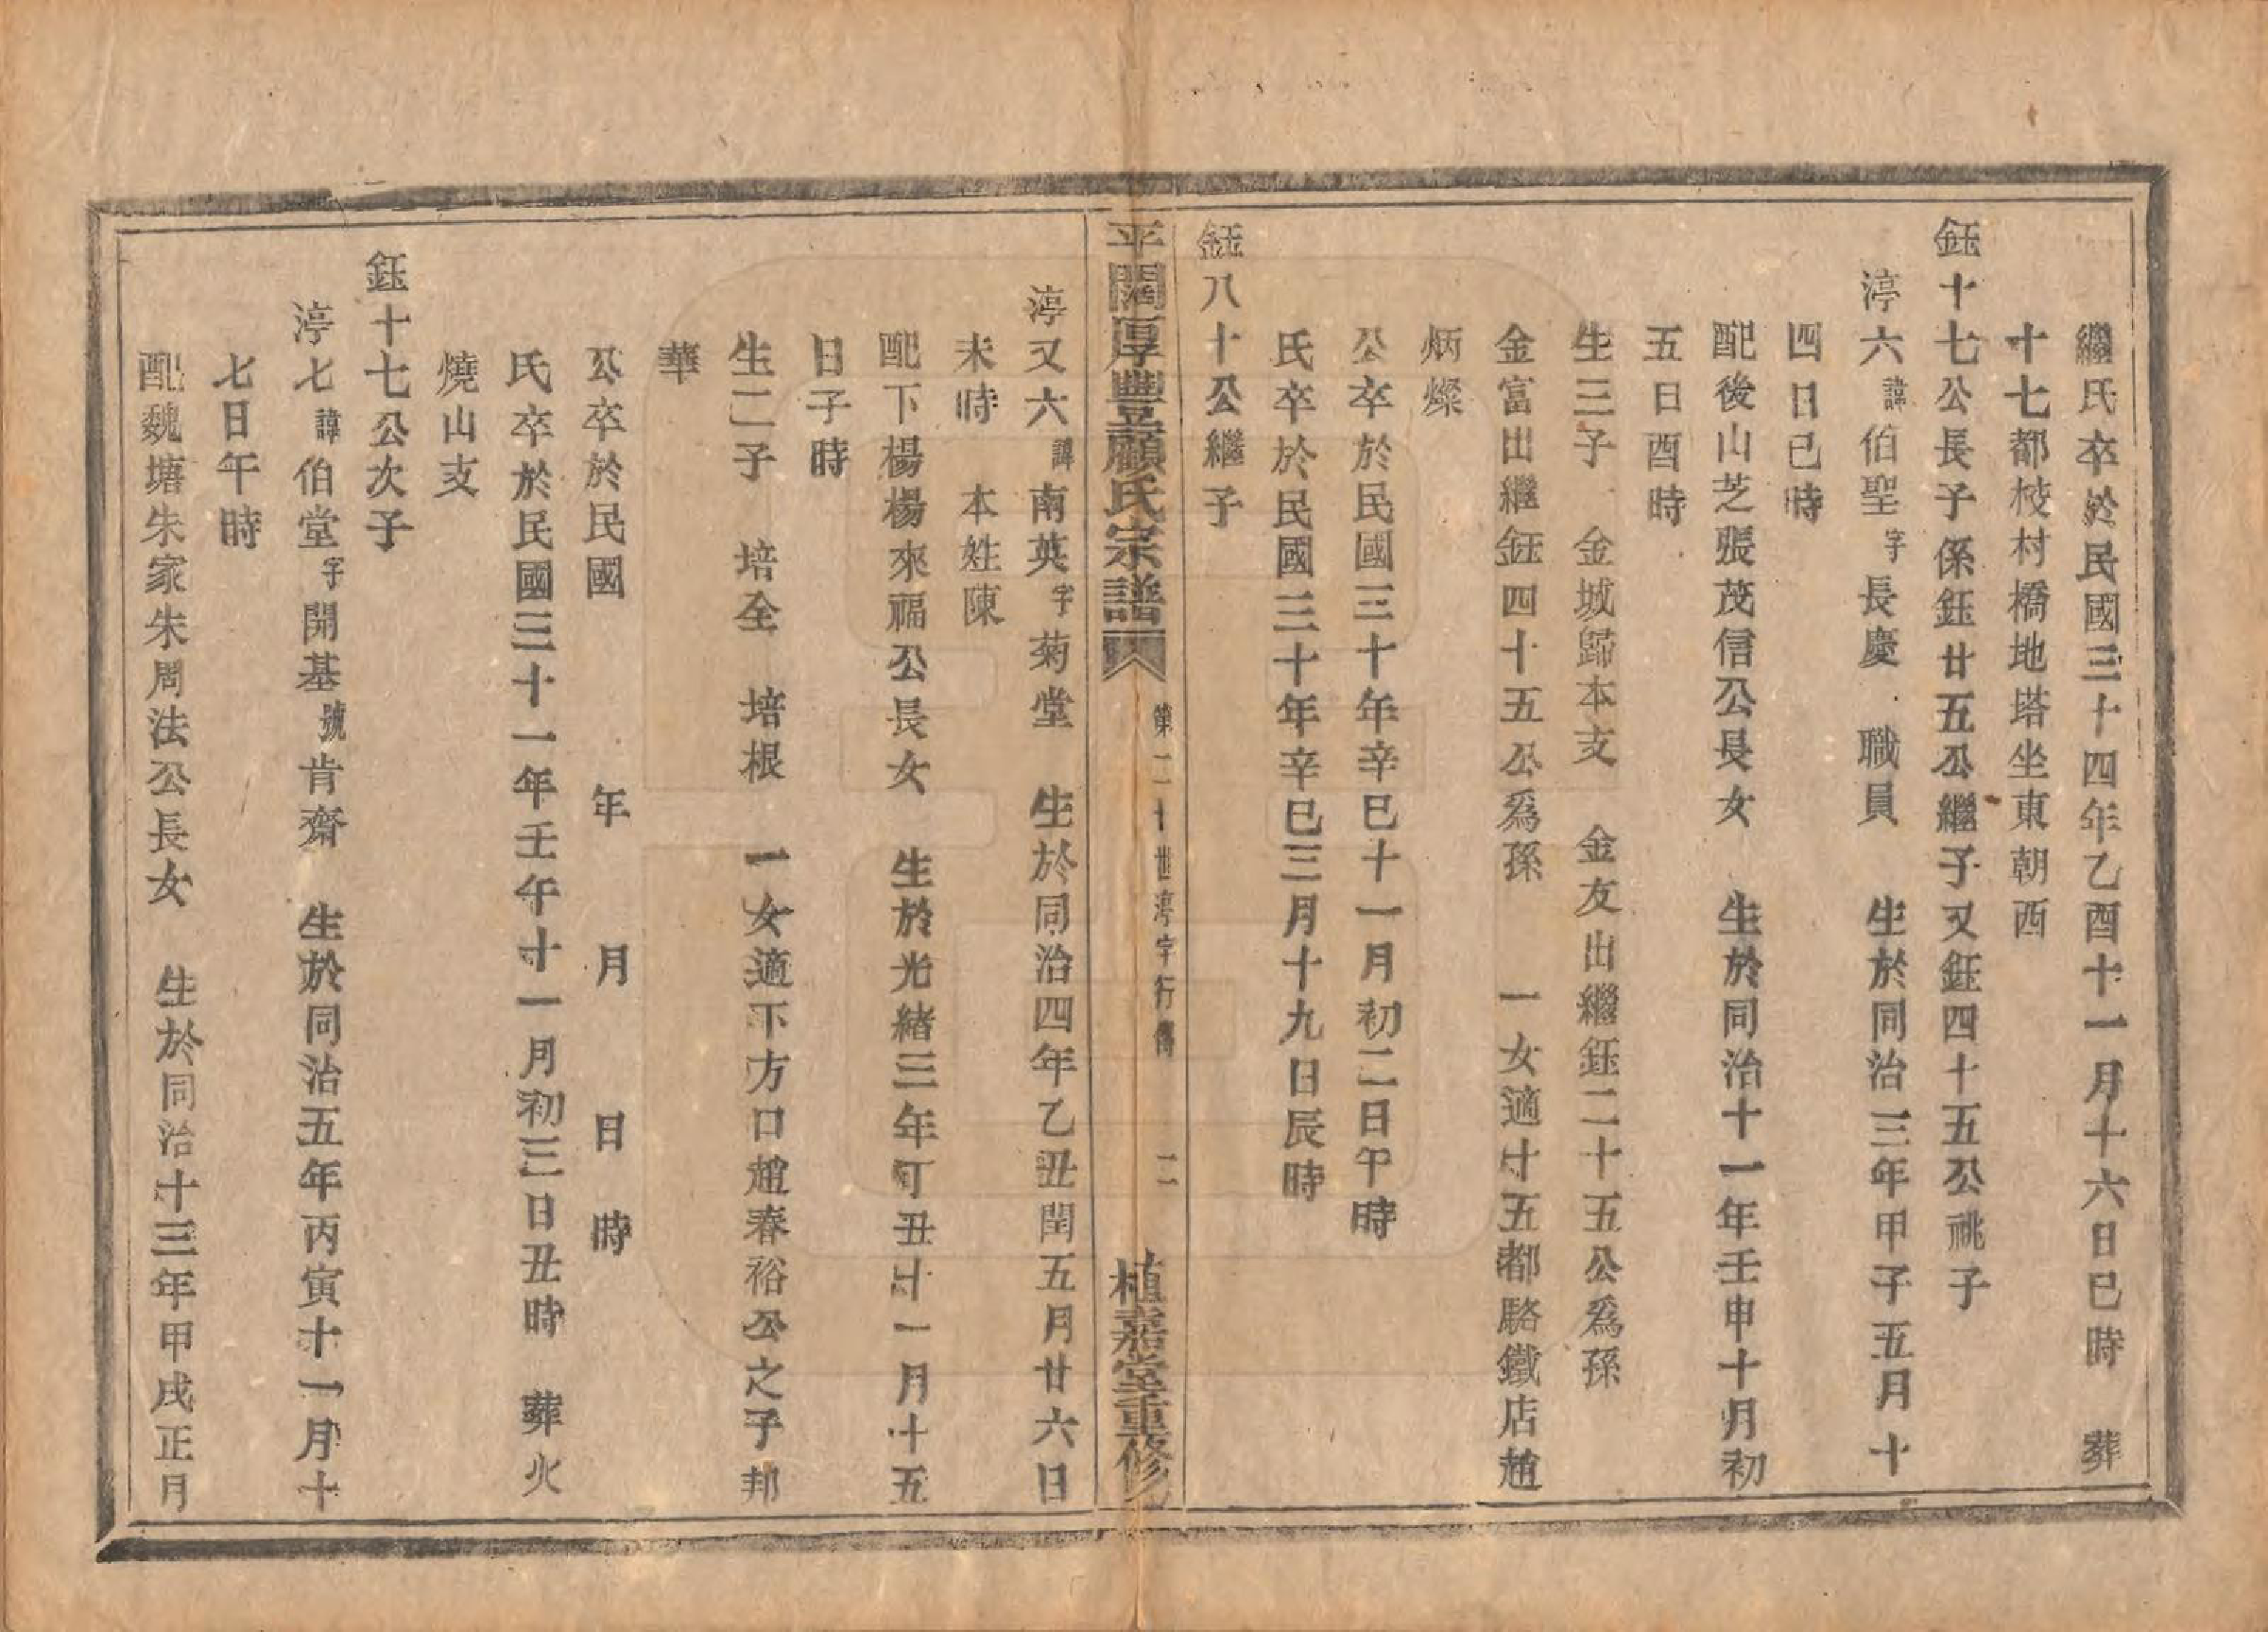 繼氏卒於民國三十四年乙酉十一月十六日巳時　葬
十七都枝村橋地塔坐東朝西
鈺十七公長子係鈺廿五公繼子又鈺四十五公祧子
渟六諱伯聖字長慶　職員　生於同治三年甲子五月十
四日巳時
配後山芝張茂信公長女　生於同治十一年壬申十月初
五日酉時
生三子　金城歸本支　金友出繼鈺二十五公爲孫
金富出繼鈺四十五公爲孫　一女適十五都駱鐵店趙
炳燦
公卒於民國三十年辛巳十一月初二日午時
氏卒於民國三十年辛巳三月十九日辰時
鈺八十公繼子
平闊厚豐顧氏宗譜　第二十世渟字行傳　二　植嘉堂重修
渟又六諱南英字菊堂　生於同治四年乙丑閏五月廿六日
未時　本姓陳
配下楊楊來福公長女　生於光緒三年丁丑十一月十五
日子時
生二子　培全　培根　一女適下方口趙春裕公之子邦
華
公卒於民國　年　月　日　時
氏卒於民國三十一年壬午十一月初三日丑時　葬火
燒山支
鈺十七公次子
渟七諱伯堂字開基號肯齋　生於同治五年丙寅十一月十
七日午時
配魏塘朱家朱周法公長女　生於同治十三年甲戌正月